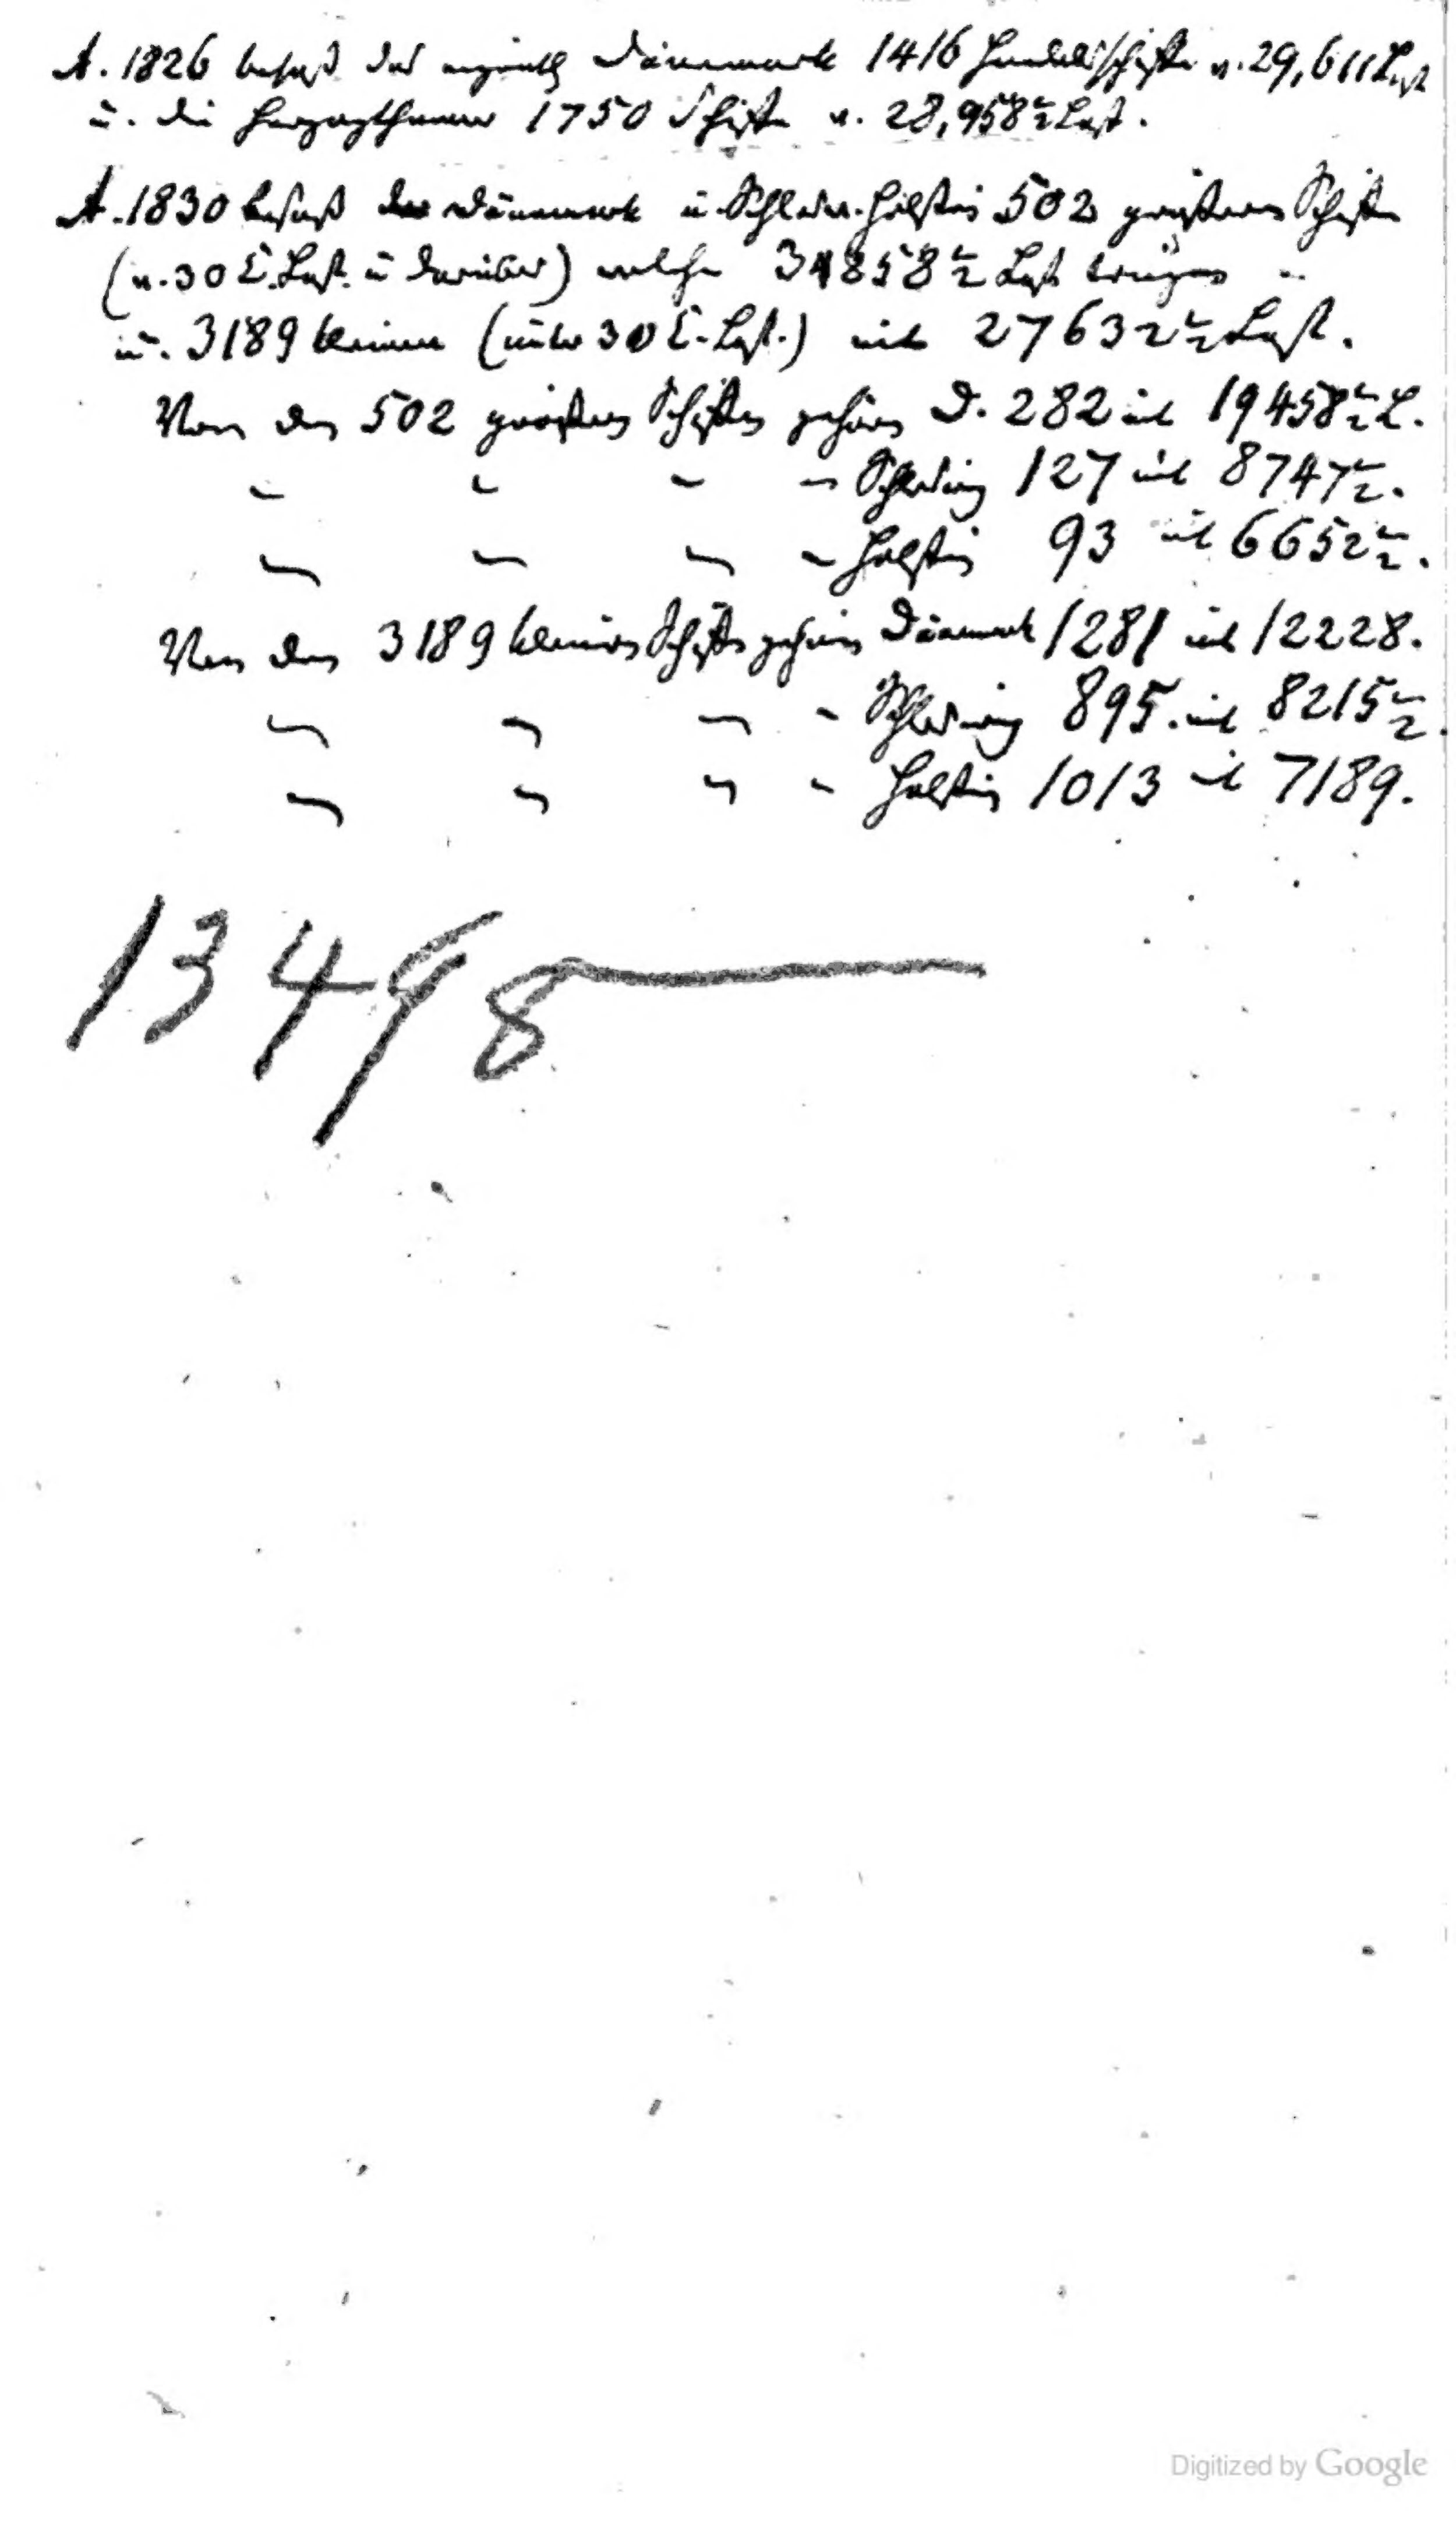 A. 1826 besaß das eigentl. Dänemark 1416 Handelsschiffe v. 29,611 Last
u. die Herzogthümer 1750 Schiffe v. 28,958½ Last.
A. 1830 besaß Dänemark u. Schlesw. Holstein 502 größere Schiffe
(v. 30 C. Last. u darüber) welche 34858½ Last trugen
u. 3189 kleinere (unter 30 C. Last.) mit 27632½ Last.
Von den 502 größern Schiffen gehören D. 282 mit 19458½ L.
" " " " Schleswig 127 mit 8747½.
" " " " Holstein 93 mit 6652½.
Von den 3189 kleinern Schiffen gehören Dänemark 1281 mit 12228.
" " " " Schleswig 895. mit 8215½.
" " " " Holstein 1013 mit 7189.
13498
Digitized by Google